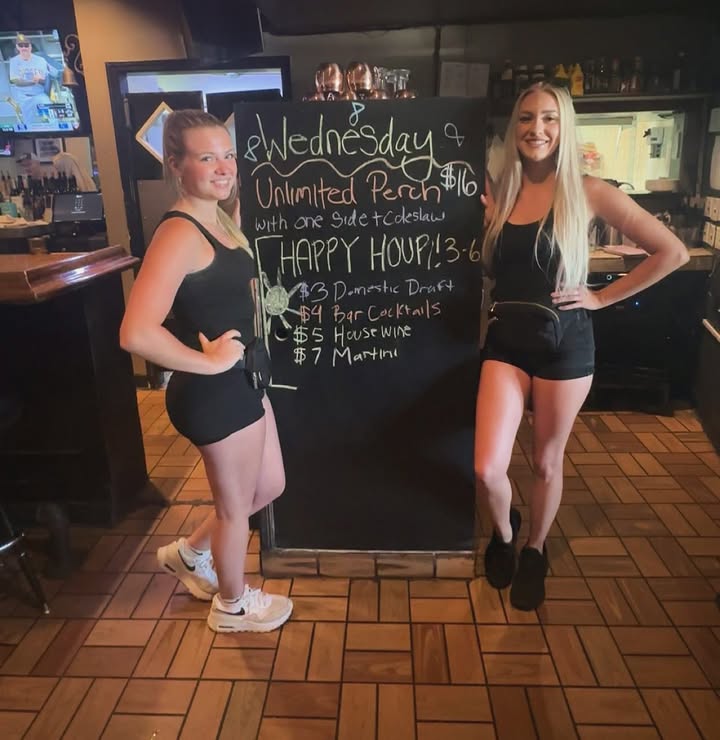 Wednesday
Unlimited Perch $16
with one side + Coleslaw
HAPPY HOUR!! 3-6
$3 Domestic Draft
$4 Bar Cocktails
$5 House wine
$7 Martini